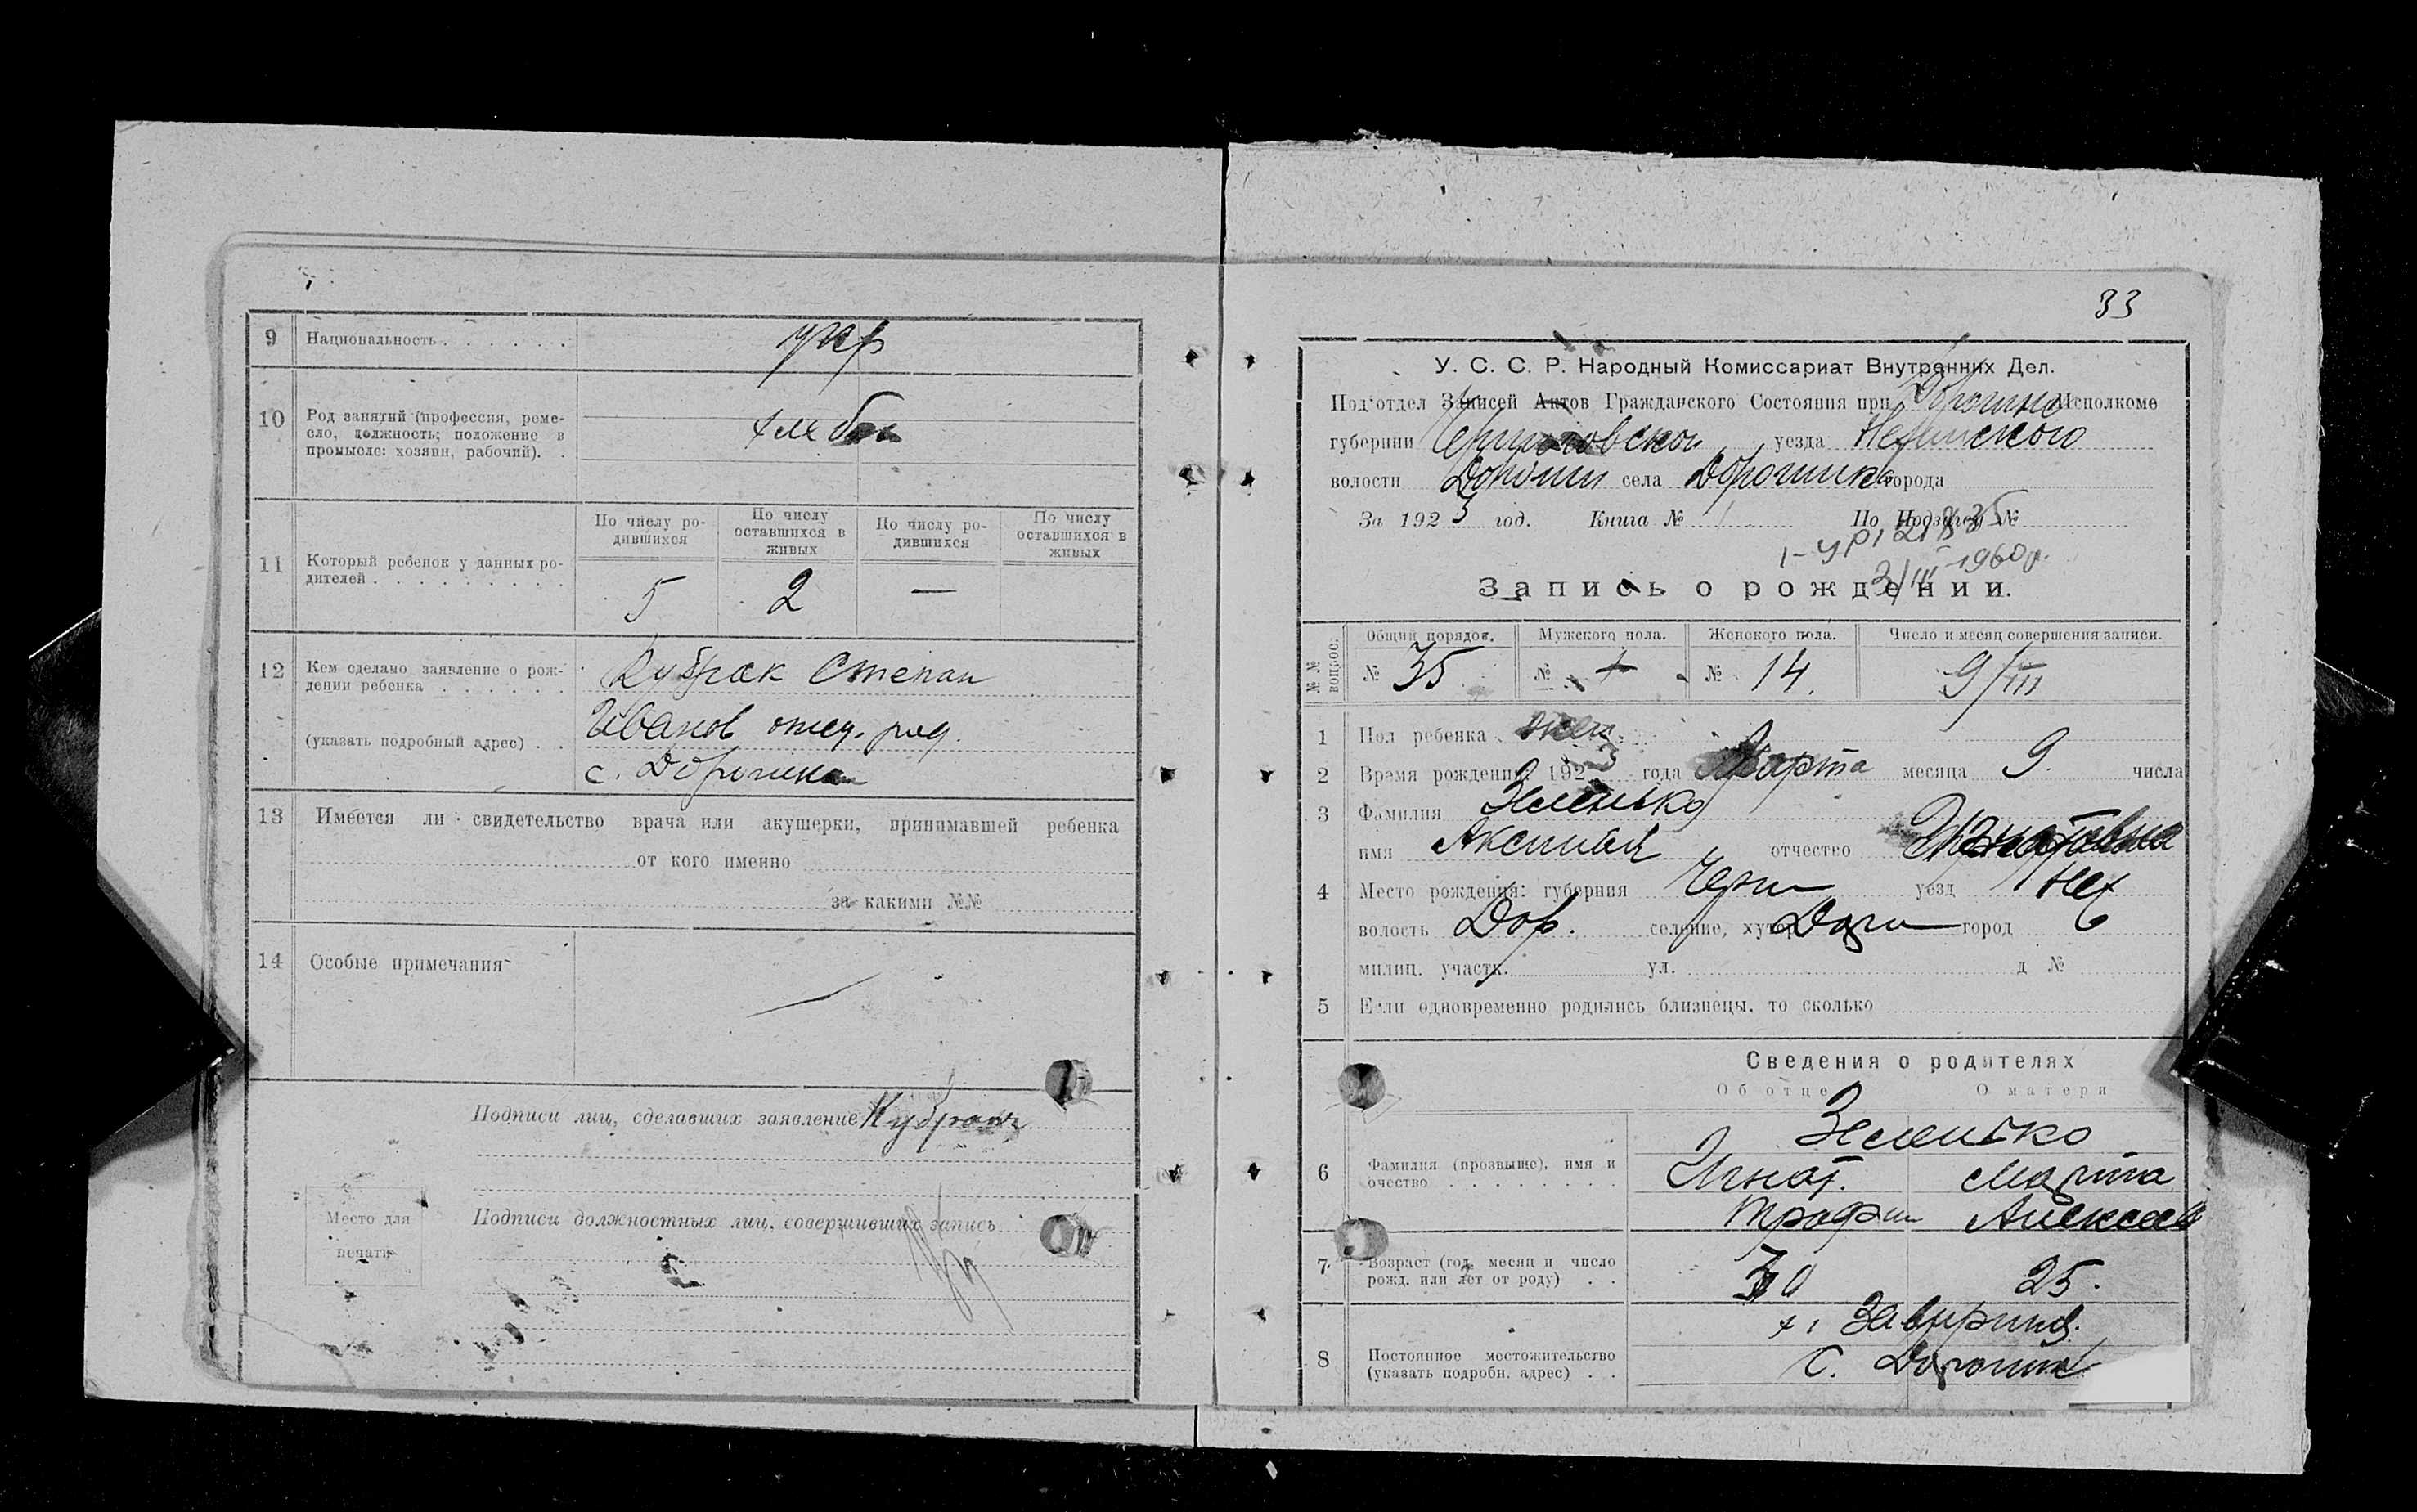 9 Национальность . . . . . .
укр
10 Род занятий (профессия, реме-
сло, должность; положение в
промысле: хозяин, рабочий). .
хлеб
11 Который ребенок у данных ро-
дителей . . . . . . . . .
По числу ро-
дившихся
По числу
оставшихся в
живых
По числу ро-
дившихся
По числу
оставшихся в
живых
5 2 —
12 Кем сделано заявление о рож-
дении ребенка . . . . . .
(указать подробный адрес) . .
Кубрак Степан
Иванов отец. ряд.
с. Дорогинка
13 Имеется ли свидетельство врача или акушерки, принимавшей ребенка
от кого именно
за какими №№
14 Особые примечания
Подписи лиц, сделавших заявление Кубрак
Подписи должностных лиц, совершивших запись
Место для
печати
33
У. С. С. Р. Народный Комиссариат Внутренних Дел.
Под'отдел Записей Актов Гражданского Состояния при Дорогинс Исполкоме
губернии Черниговской уезда Нежинского
волости села Дорогинка города
За 1923 год. Книга № По №
3/III-1960р.
Запись о рождении.
№№ вопрос.
Общий порядов. Мужского пола. Женского пола. Число и месяц совершения записи.
№ 35 № № 14. 9/III
1 Пол ребенка жен.
2 Время рождения 1923 года Марта месяца 9. числа
3 Фамилия Зеленько
имя Аксиния отчество Игнатовна
4 Место рождения: губерния Черн уезд Неж
волость Дор. селение, хутор Дори город
милиц. участк. ул. д №
5 Если одновременно родились близнецы, то сколько
Сведения о родителях
Об отце О матери
6 Фамилия (прозвище), имя и
очество . . . . . . . .
Зеленько
Игнат. Марта
Трофим Алексеев
7 Возраст (год, месяц и число
рожд. или лет от роду) . .
30 25.
8 Постоянное местожительство
(указать подробн. адрес) . .
х.
с. Дорогин